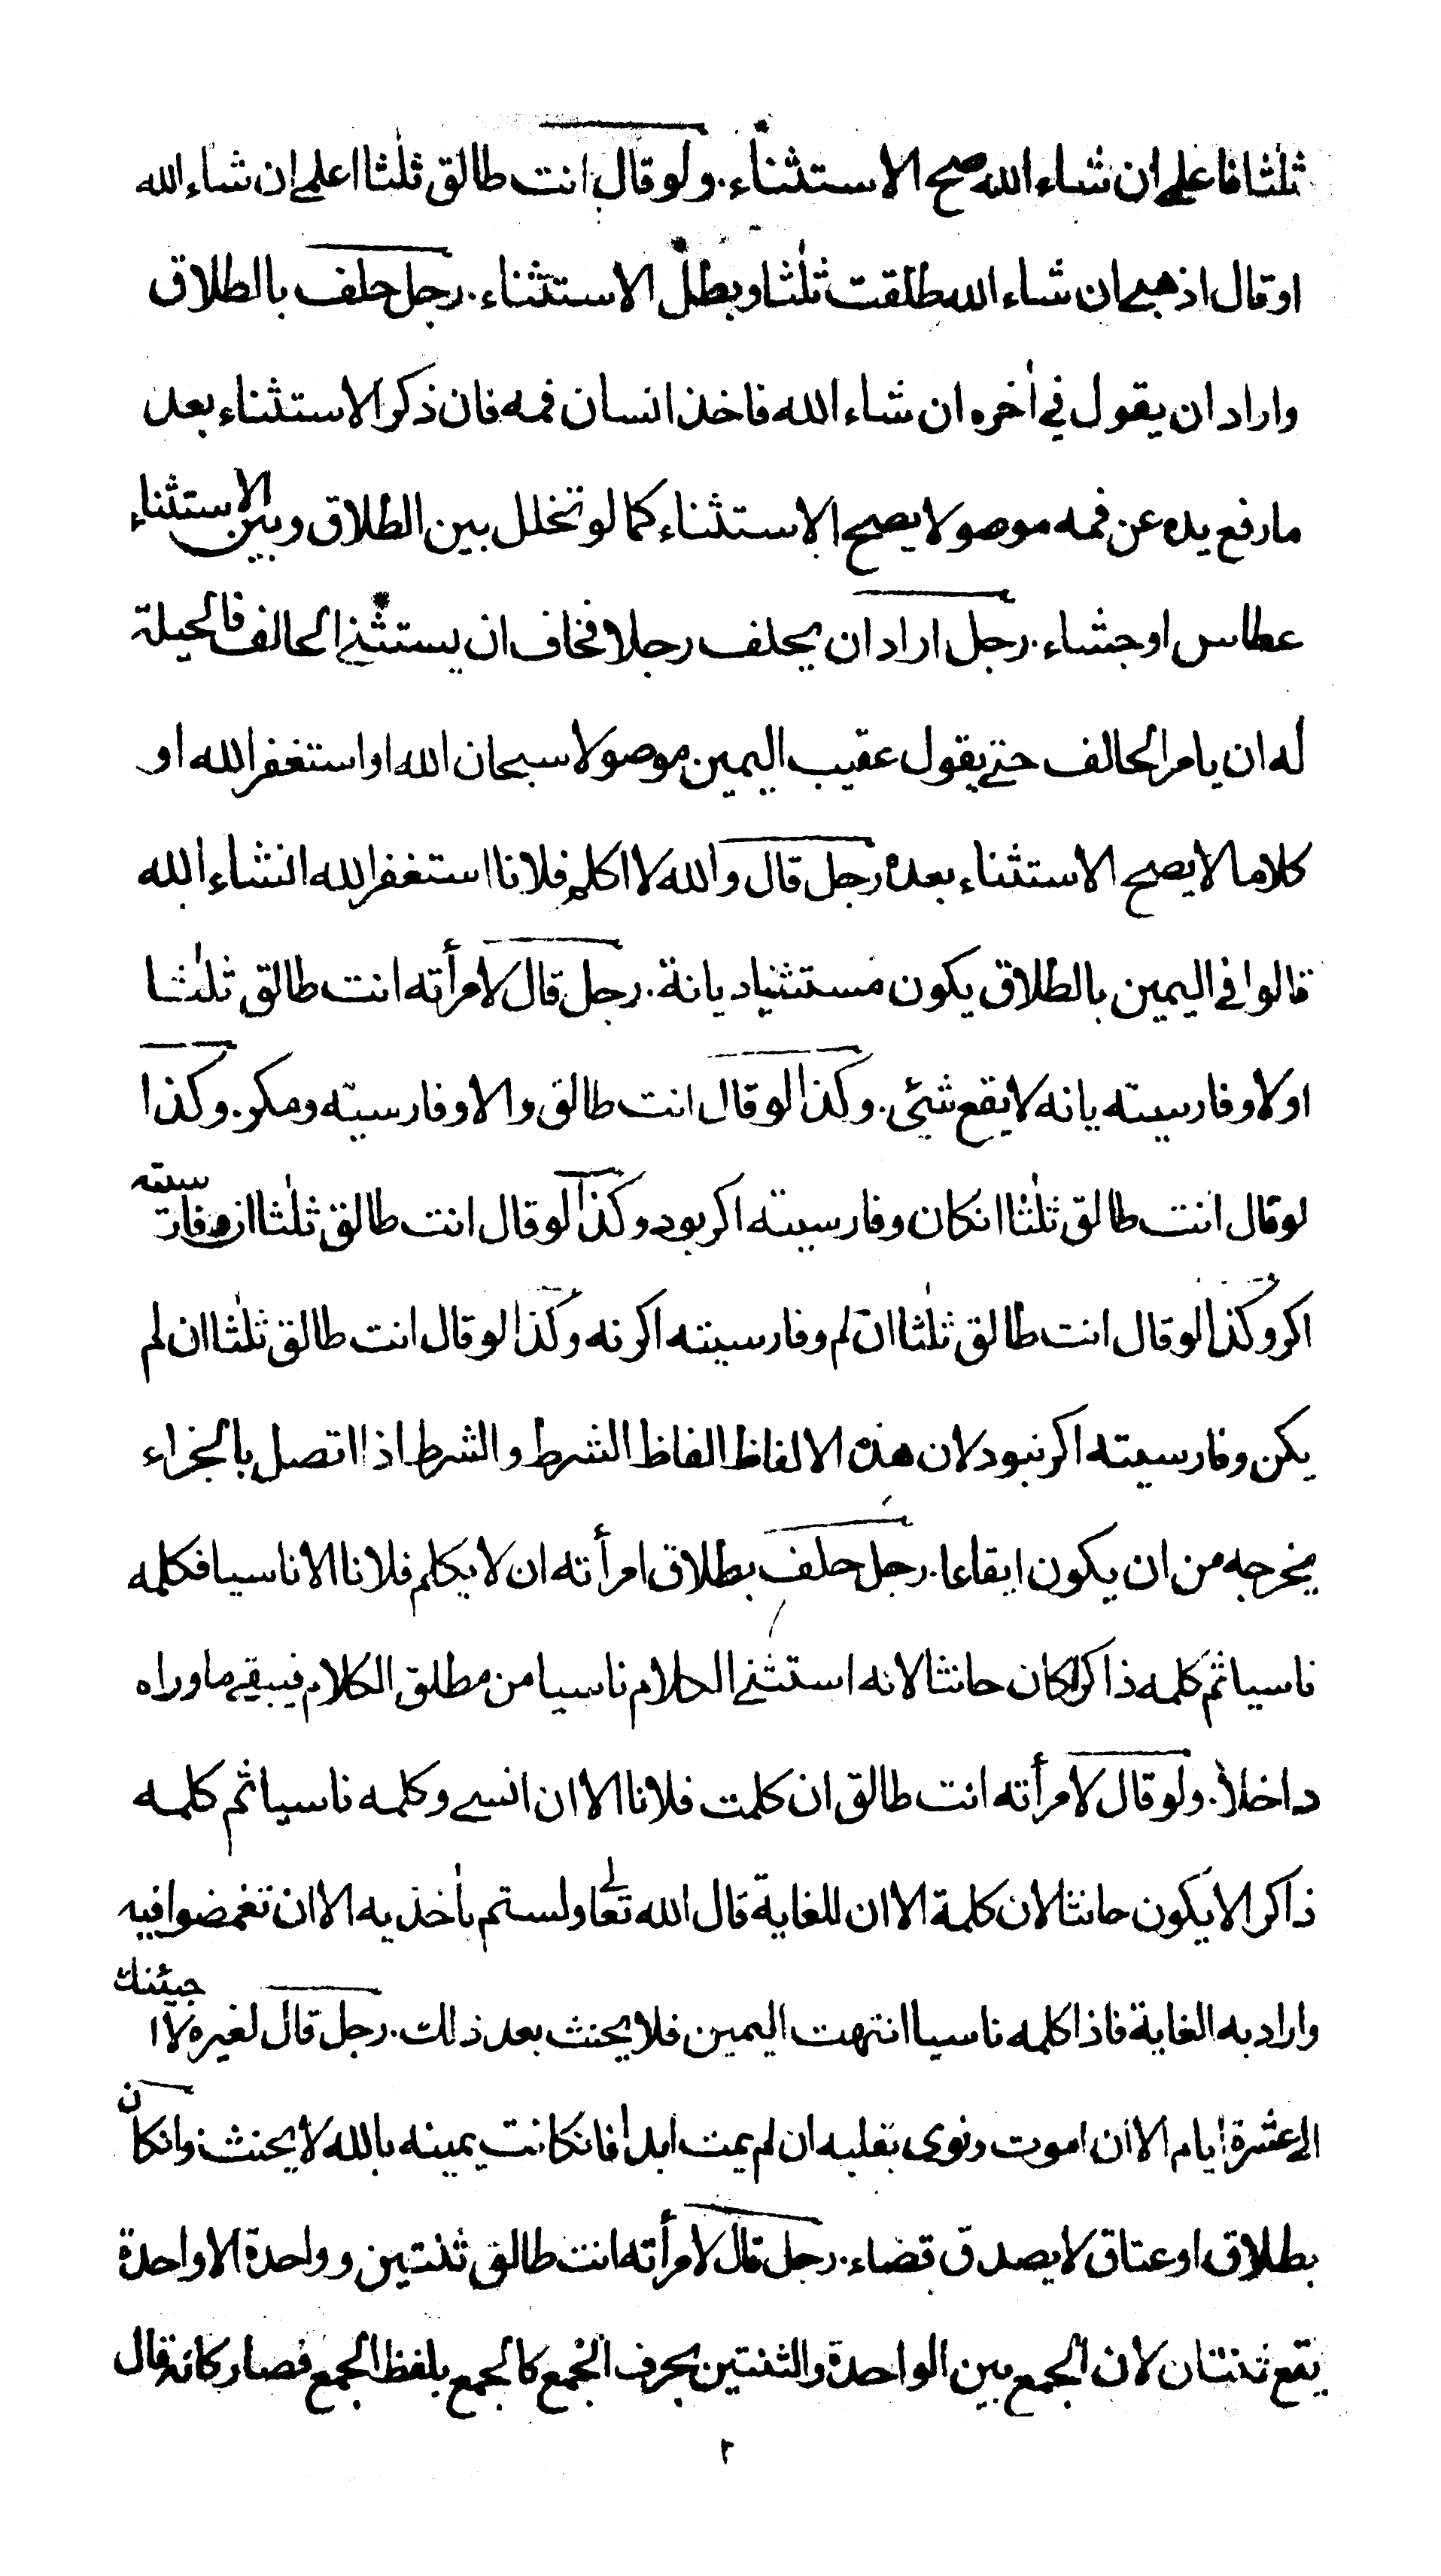 ثلٰثا فاعلمي ان شاء الله صح الاستثناء . ولو قال انت طالق ثلٰثا اعلمي ان شاء الله
او قال اذهبي ان شاء الله طلقت ثلٰثا وبطل الاستثناء . رجل حلف بالطلاق
واراد ان يقول في اٰخره ان شاء الله فاخذ انسان فمه فان ذكر الاستثناء بعد
ما رفع يده عن فمه موصولا يصح الاستثناء كما لو تخلل بين الطلاق وبين الاستثناء
عطاس او جشاء . رجل اراد ان يحلف رجلا فخاف ان يستثني الحالف فالحيلة
له ان يامر الحالف حتى يقول عقيب اليمين موصولا سبحان الله او استغفر الله او
كلاما لا يصح الاستثناء بعده رجل قال والله لا اكلم فلانا استغفر الله انشاء الله
قالوا في اليمين بالطلاق يكون مستثنيا ديانة . رجل قال لامرأته انت طالق ثلٰثا
اولا وفارسيته يانه لا يقع شئي . وكذا لو قال انت طالق والا وفارسيته ومكر . وكذا
لو قال انت طالق ثلٰثا انكان وفارسيته اكر بود وكذا لو قال انت طالق ثلٰثا ان وفارسيته
اكر وكذا لو قال انت طالق ثلٰثا ان لم وفارسيته اكر نه وكذا لو قال انت طالق ثلٰثا ان لم
يكن وفارسيته اكر نبود لان هذه الالفاظ الفاظ الشرط والشرط اذا اتصل بالجزاء
يخرجه من ان يكون ايقاعا . رجل حلف بطلاق امرأته ان لا يكلم فلانا الا ناسيا فكلمه
ناسيا ثم كلمه ذاكرا كان حانثا لانه استثنى الكلام ناسيا من مطلق الكلام فيبقى ما وراه
داخلا . ولو قال لامرأته انت طالق ان كلمت فلانا الا ان انسى وكلمه ناسيا ثم كلمه
ذاكرا لا يكون حانثا لان كلمة الا ان للغاية قال الله تعالى ولستم باٰخذيه الا ان تغمضوا فيه
واراد به الغاية فاذا كلمه ناسيا انتهت اليمين فلا يحنث بعد ذلك . رجل قال لغيره لا اجيئنك
الى عشرة ايام الا ان اموت ونوى بقلبه ان لم يمت ابدا فانكانت يمينه بالله لا يحنث وانكان
بطلاق او عتاق لا يصدق قضاء . رجل قال لامرأته انت طالق ثنتين وواحدة الا واحدة
يقع ثنتان لان الجمع بين الواحدة والثنتين بحرف الجمع كالجمع بلفظ الجمع فصار كانه قال
٢